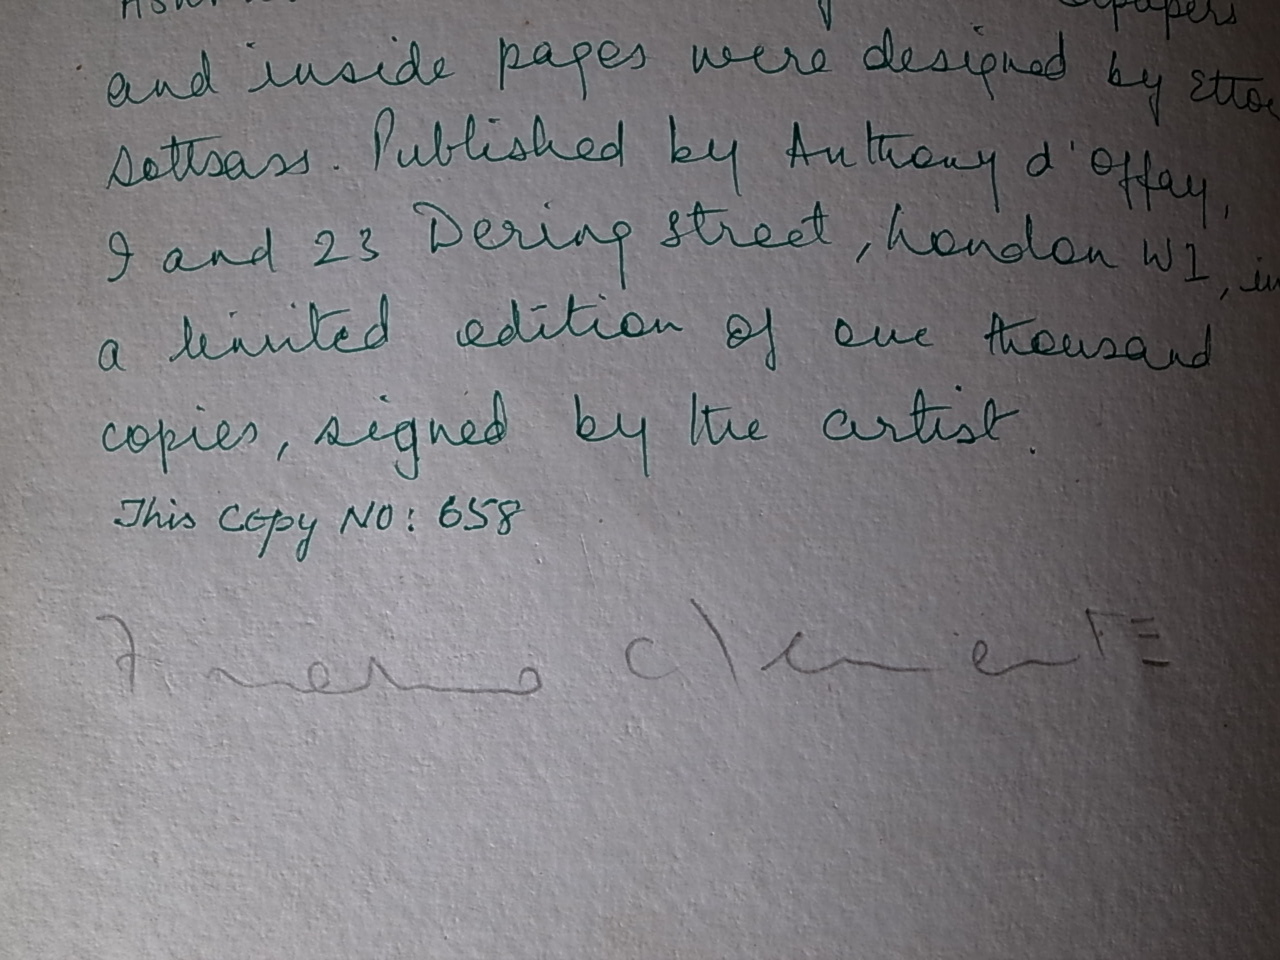 papers
and inside pages were designed by Etto
Sottsass. Published by Anthony d'Offay,
9 and 23 Dering Street, London W1, in
a limited edition of one thousand
copies, signed by the artist.
This Copy NO: 658
Clemente